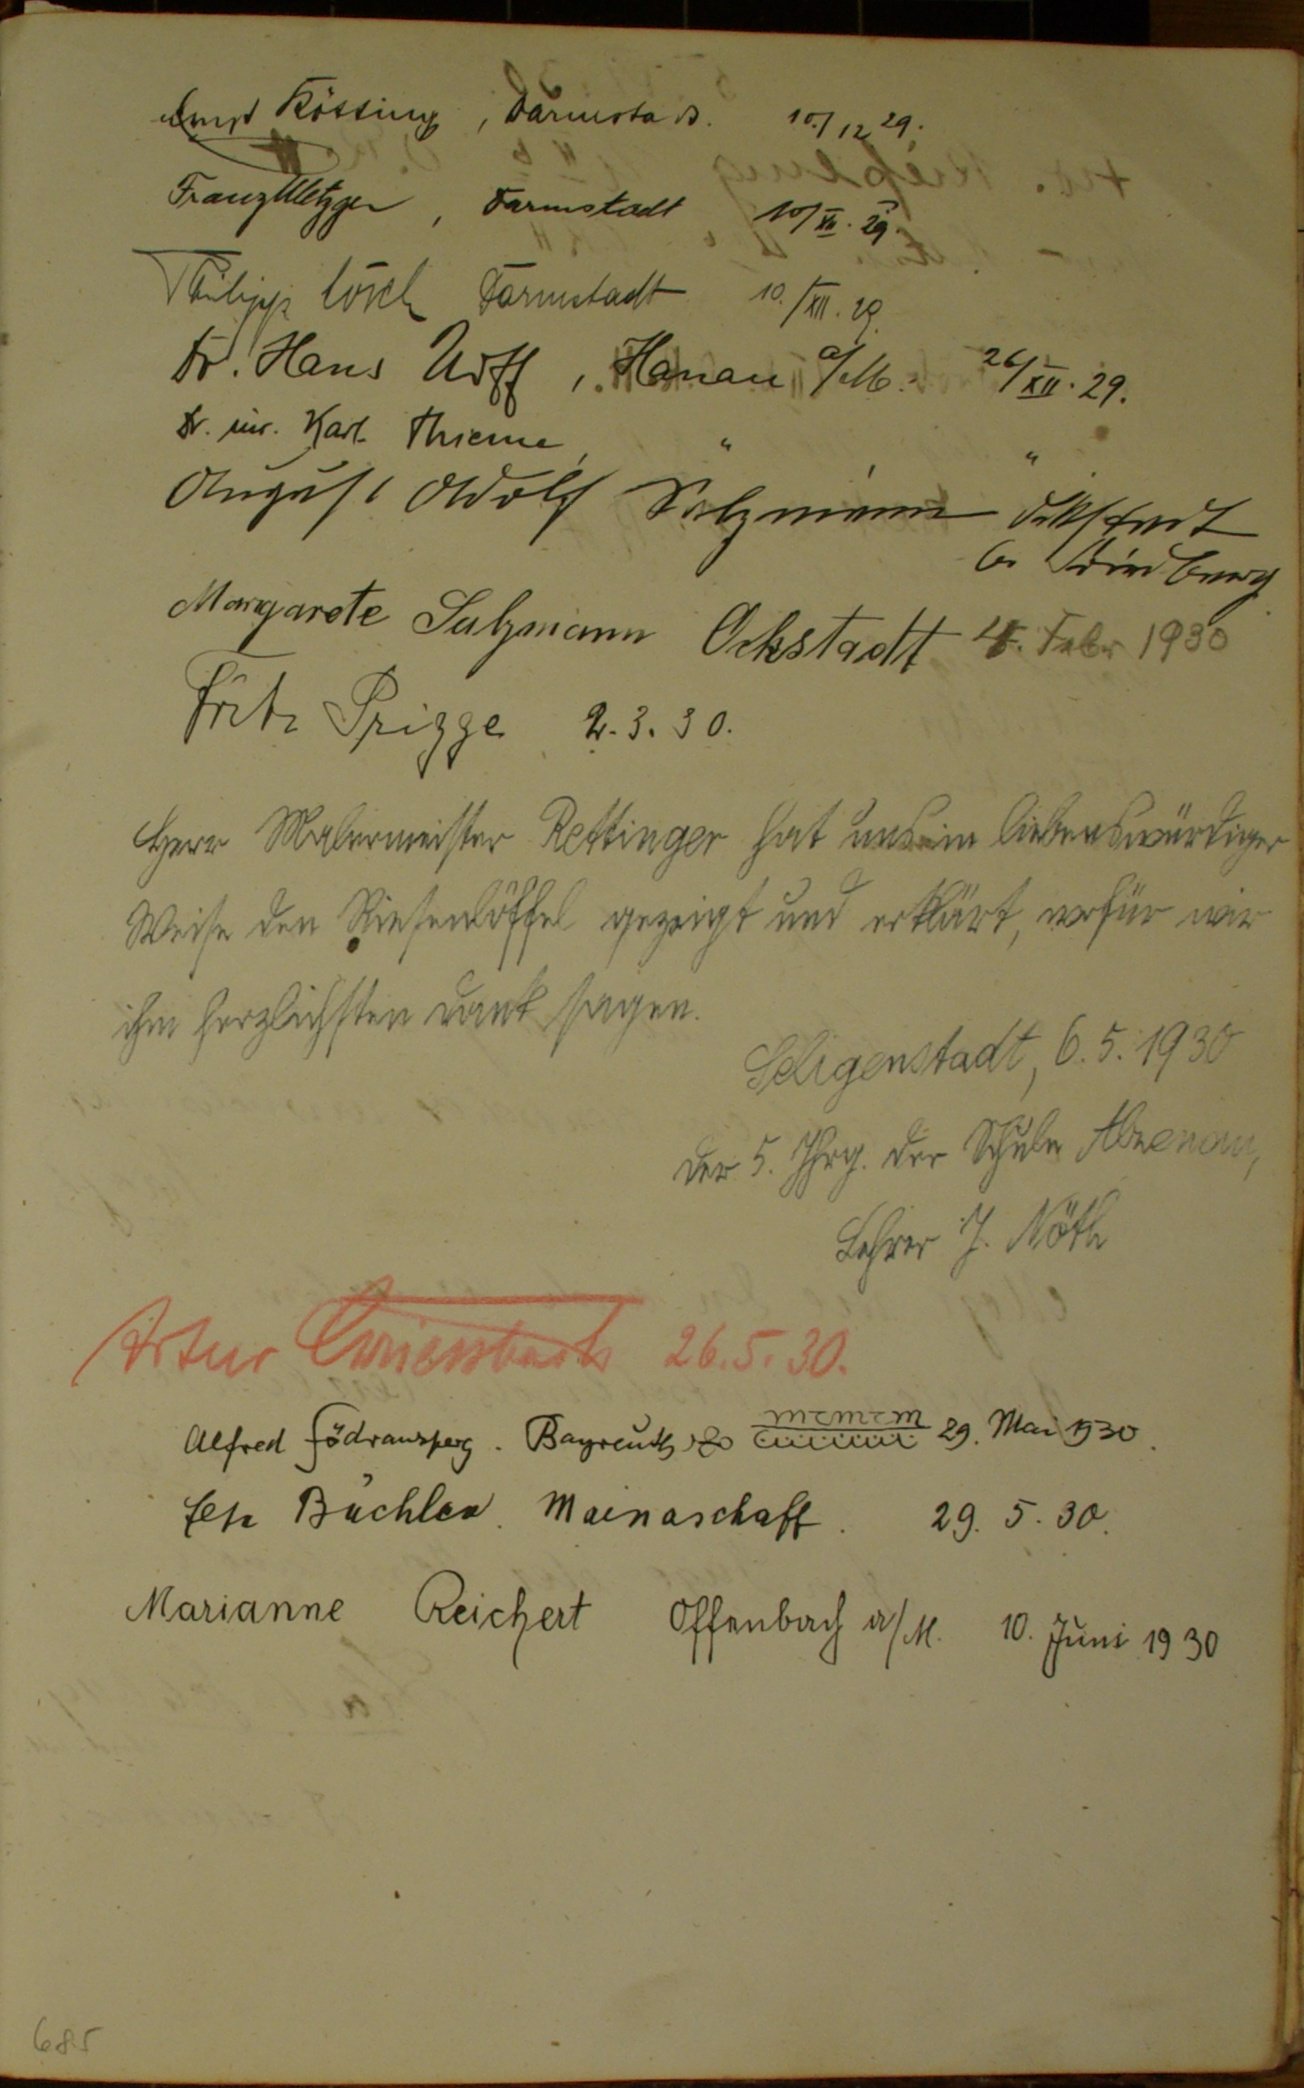 Ernst Kössing, Darmstadt. 10./12 29.
Franz Metzger, Darmstadt 10/XII. 29.
Philipp Lösch Darmstadt 10./XII. 29.
Dr. Hans Urff, Hanau a/M. 26/XII. 29.
Dr. iur. Karl Thieme, " "
August Adolf Salzmann Ockstadt
b. Friedberg
Margarete Salzmann Ockstadt 4. Febr 1930
Fritz Prigge 2.3.30.
Herr Malermeister Rettinger hat uns in liebenswürdiger
Weise den Riesenlöffel gezeigt und erklärt, wofür wir
ihm herzlichsten Dank sagen.
Seligenstadt, 6.5.1930
der 5. Jhrg. der Schule Alzenau,
Lehrer J. Nöth
Artur 26.5.30.
Alfred Födransperg. Bayreuth 29. Mai 1930.
Büchler. Mainaschaff. 29. 5. 30.
Marianne Reichert Offenbach a/M. 10. Juni 1930
685